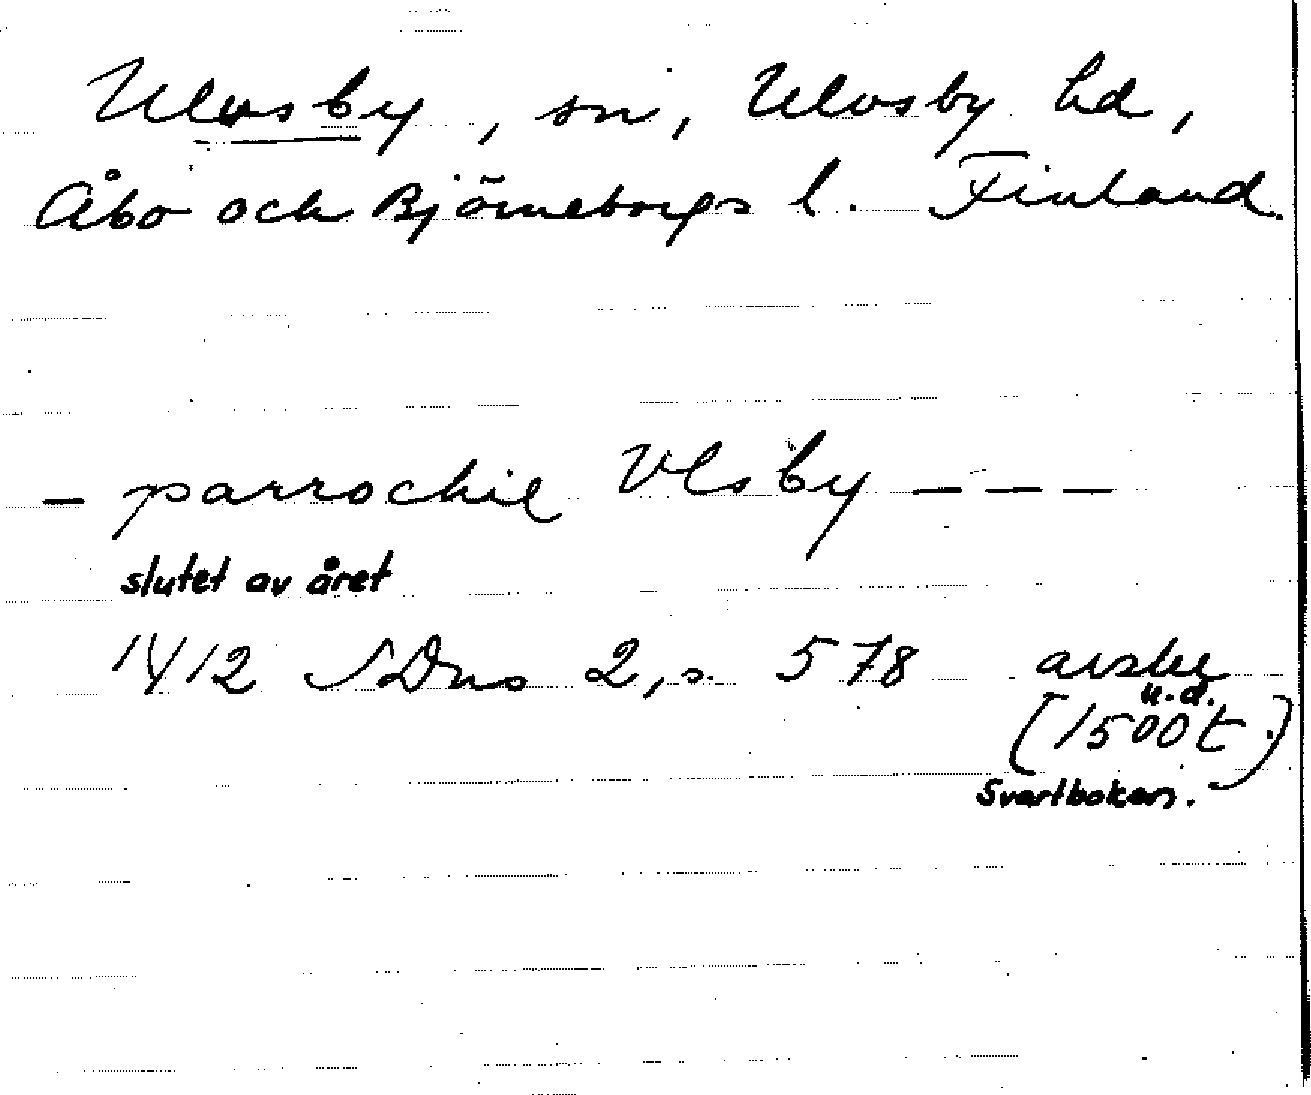 Ulvsby, sn, Ulvsby hd,
Åbo och Björneborgs l. Finland.
- parrochie Vlsby - - -
slutet av året
1412 SDns 2, s. 578 avskr
u.d.
(1500t.)
Svartboken.